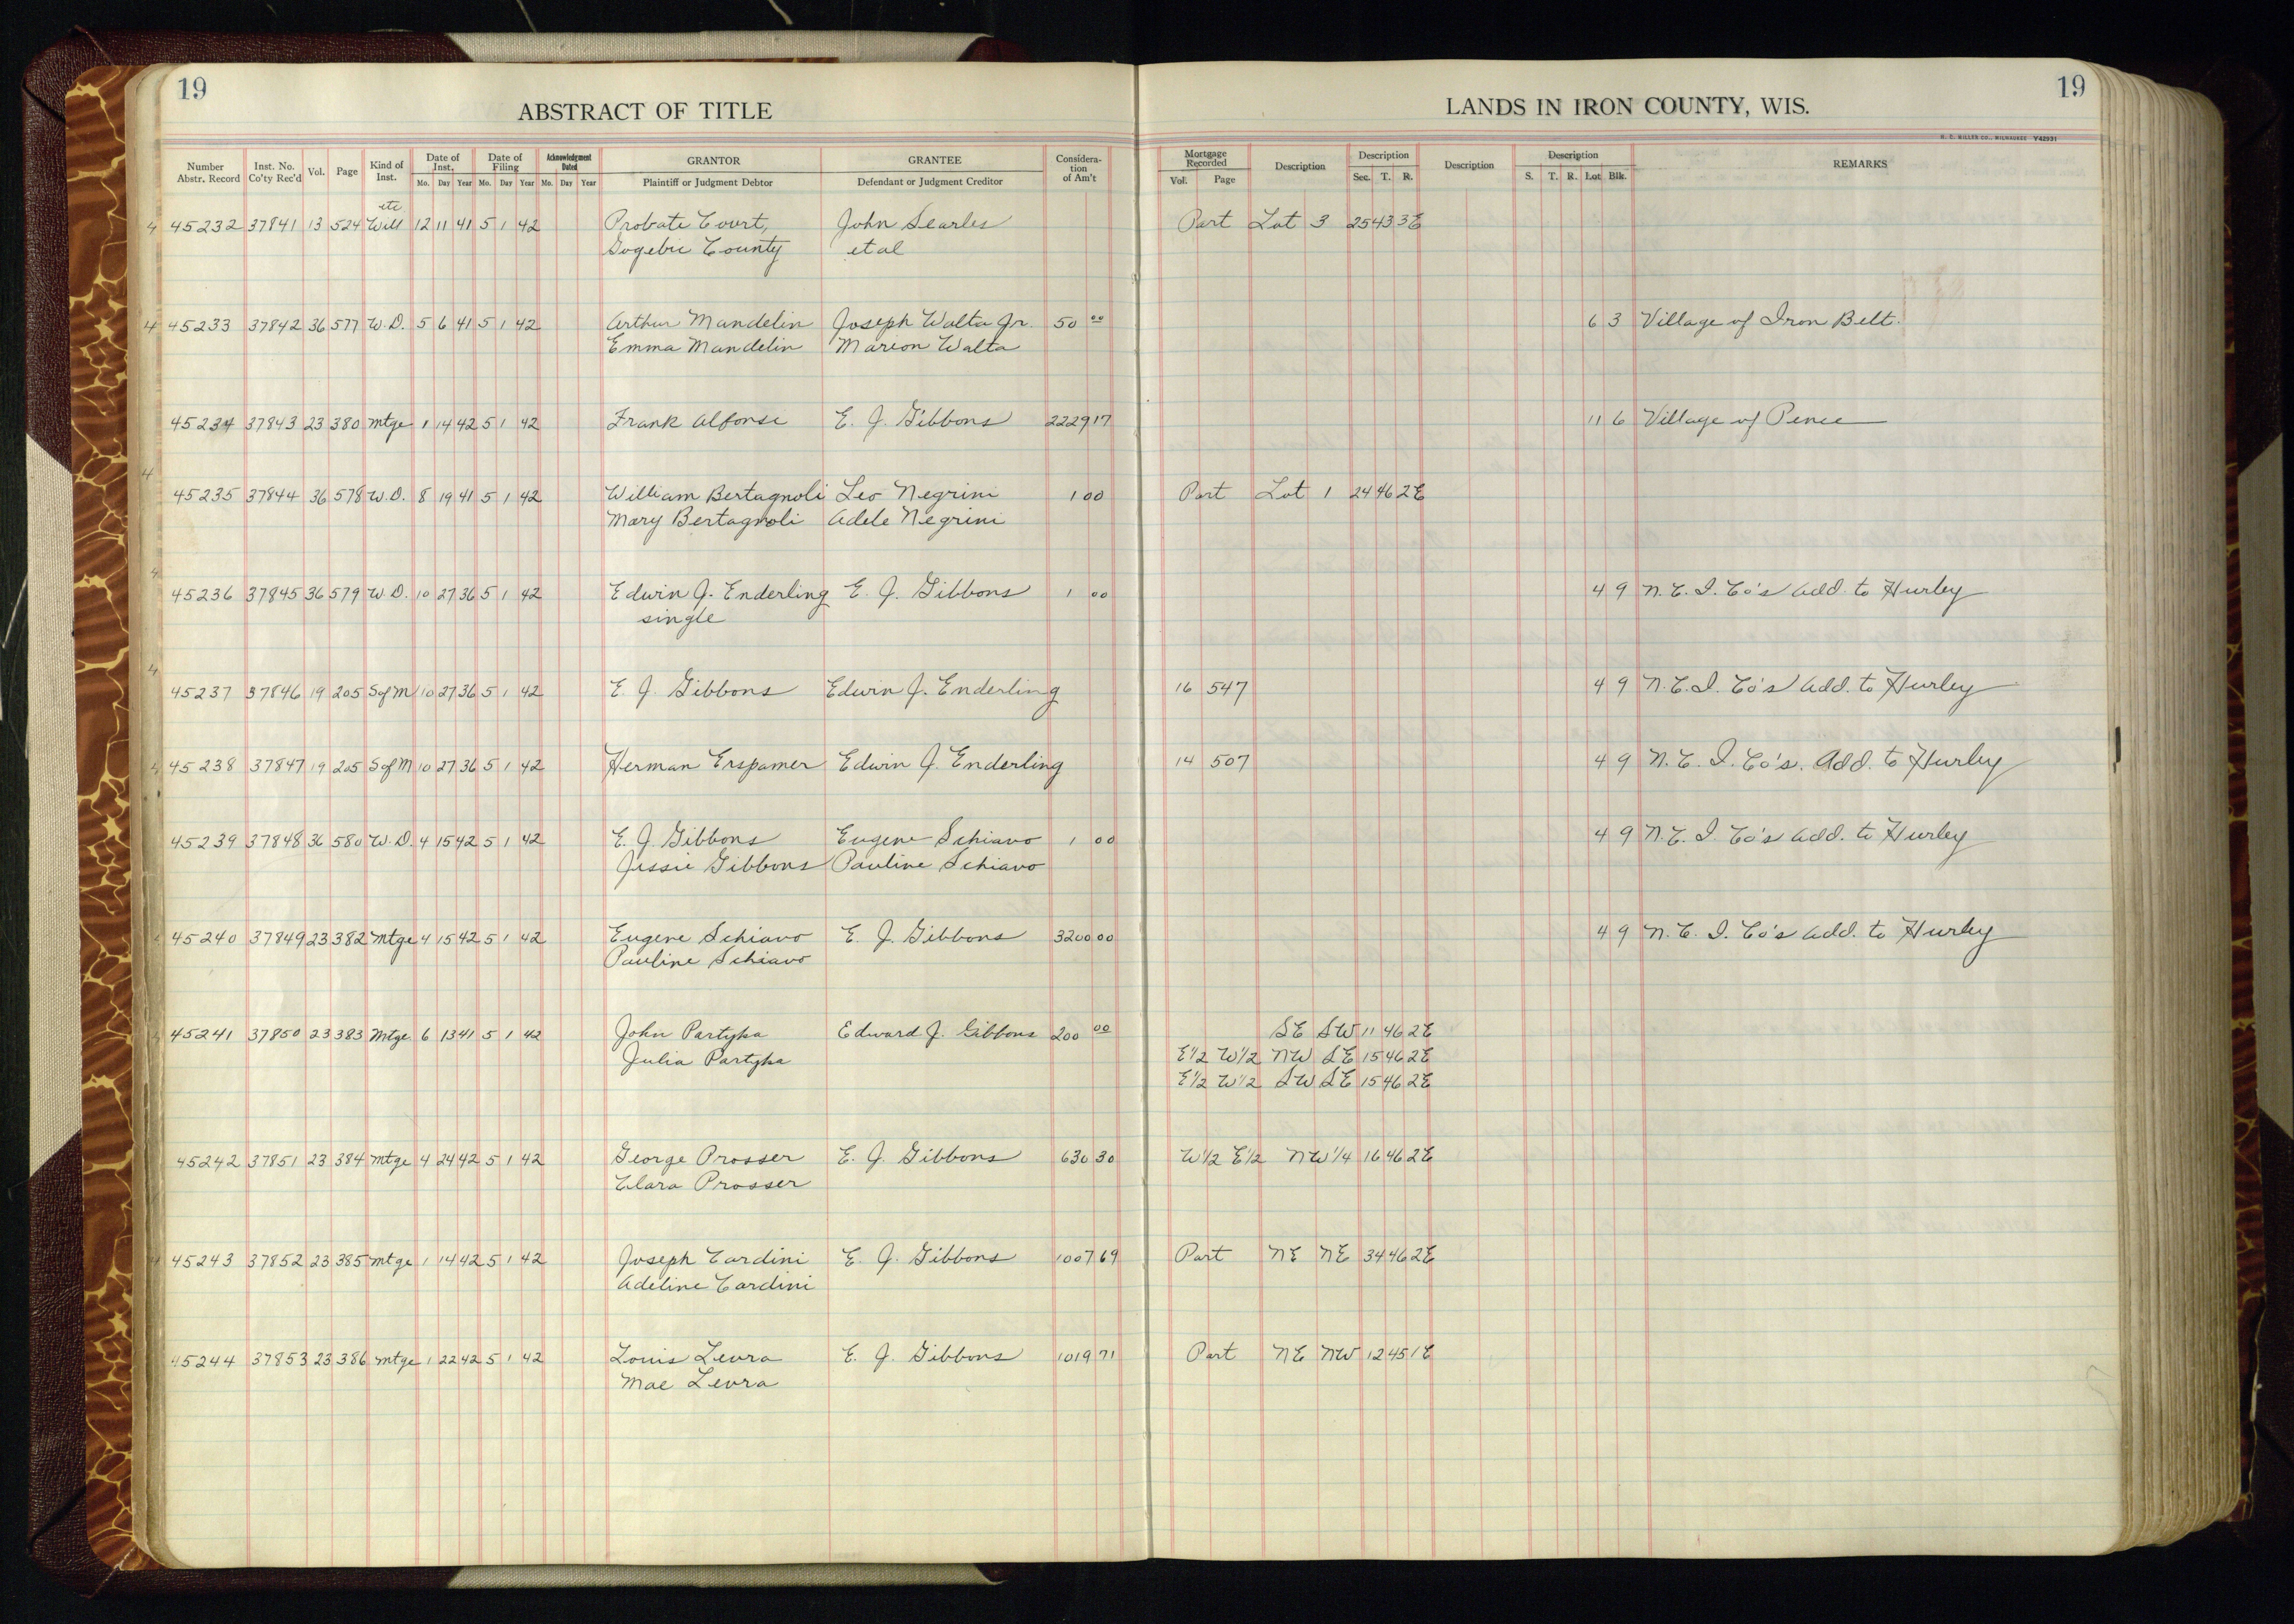 19
ABSTRACT OF TITLE
LANDS IN IRON COUNTY, WIS.
19
H. C. MILLER CO., MILWAUKEE Y42931
Number Abstr. Record Inst. No. Co'ty Rec'd Vol. Page Kind of Inst. Date of Inst. Mo. Day Year Date of Filing Mo. Day Year Acknowledgment Dated Mo. Day Year GRANTOR Plaintiff or Judgment Debtor GRANTEE Defendant or Judgment Creditor Considera-tion of Am't Mortgage Recorded Vol. Page Description Description Sec. T. R. Description Description S. T. R. Lot Blk. REMARKS
etc
4 45232 37841 13 524 Will 12 11 41 5 1 42 Probate Court, John Searles Part Lot 3 25 43 3E
Gogebic County et al
4 45233 37842 36 577 W.D. 5 6 41 5 1 42 Arthur Mandelin Joseph Walta Jr. 50 00 6 3 Village of Iron Belt.
Emma Mandelin Marion Walta
45234 37843 23 380 Mtge 1 14 42 5 1 42 Frank Alfonse E. J. Gibbons 2229 17 11 6 Village of Pence
4
45235 37844 36 578 W.D. 8 19 41 5 1 42 William Bertagnoli Leo Negrini 1 00 Part Lot 1 24 46 2E
Mary Bertagnoli Adele Negrini
4
45236 37845 36 579 W.D. 10 27 36 5 1 42 Edwin J. Enderling E. J. Gibbons 1 00 4 9 N. C. I. Co's Add. to Hurley
single
4
45237 37846 19 205 S of M 10 27 36 5 1 42 E. J. Gibbons Edwin J. Enderling 16 547 4 9 N. C. I. Co's Add. to Hurley
4 45238 37847 19 205 S of M 10 27 36 5 1 42 Herman Erspamer Edwin J. Enderling 14 507 4 9 N. C. I. Co's. Add. to Hurley
45239 37848 36 580 W.D. 4 15 42 5 1 42 E. J. Gibbons Eugene Schiavo 1 00 4 9 N. C. I. Co's Add. to Hurley
Jessie Gibbons Pauline Schiavo
45240 37849 23 382 Mtge 4 15 42 5 1 42 Eugene Schiavo E. J. Gibbons 3200 00 4 9 N. C. I. Co's Add. to Hurley
Pauline Schiavo
45241 37850 23 383 Mtge 6 13 41 5 1 42 John Partyka Edward J. Gibbons 200 00 SE SW 11 46 2E
Julia Partyka E½ W½ NW SE 15 46 2E
E½ W½ SW SE 15 46 2E
45242 37851 23 384 Mtge 4 24 42 5 1 42 George Prosser E. J. Gibbons 630 30 W½ E½ NW¼ 16 46 2E
Clara Prosser
45243 37852 23 385 Mtge 1 14 42 5 1 42 Joseph Cardini E. J. Gibbons 1007 69 Part NE NE 34 46 2E
Adeline Cardini
45244 37853 23 386 Mtge 1 22 42 5 1 42 Louis Levra E. J. Gibbons 1019 71 Part NE NW 12 45 1E
Mae Levra